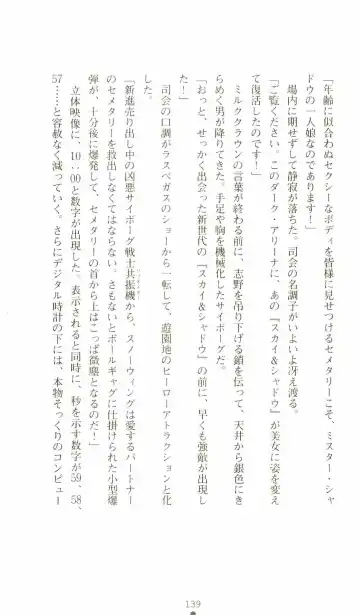 「年齢に似合わぬセクシーなボディを皆様に見せつけるセメタリーこそ、ミスター・シャ
ドウの一人娘なのであります！」
場内に期せずして静寂が落ちた。司会の名調子がいよいよ冴え渡る。
「ご覧ください。このダーク・アリーナに、あの『スカイ＆シャドウ』が美女に姿を変え
て復活したのです！」
ミルククラウンの言葉が終わる前に、志野を吊り下げる鎖を伝って、天井から銀色にき
らめく男が降りてきた。手足や胸を機械化したサイボーグだ。
「おっと、せっかく出会った新世代の『スカイ＆シャドウ』の前に、早くも強敵が出現し
た！」
司会の口調がラスベガスのショーから一転して、遊園地のヒーローアトラクションと化
した。
「新進売り出し中の凶悪サイボーグ戦士共振機から、スノーウィングは愛するパートナー
のセメタリーを救出しなくてはならない。さもないとボールギャグに仕掛けられた小型爆
弾が、十分後に爆発して、セメタリーの首から上はこっぱ微塵となるのだ！」
立体映像に、10：00と数字が出現した。表示されると同時に、秒を示す数字が59、58、
57……と容赦なく減っていく。さらにデジタル時計の下には、本物そっくりのコンピュー
139